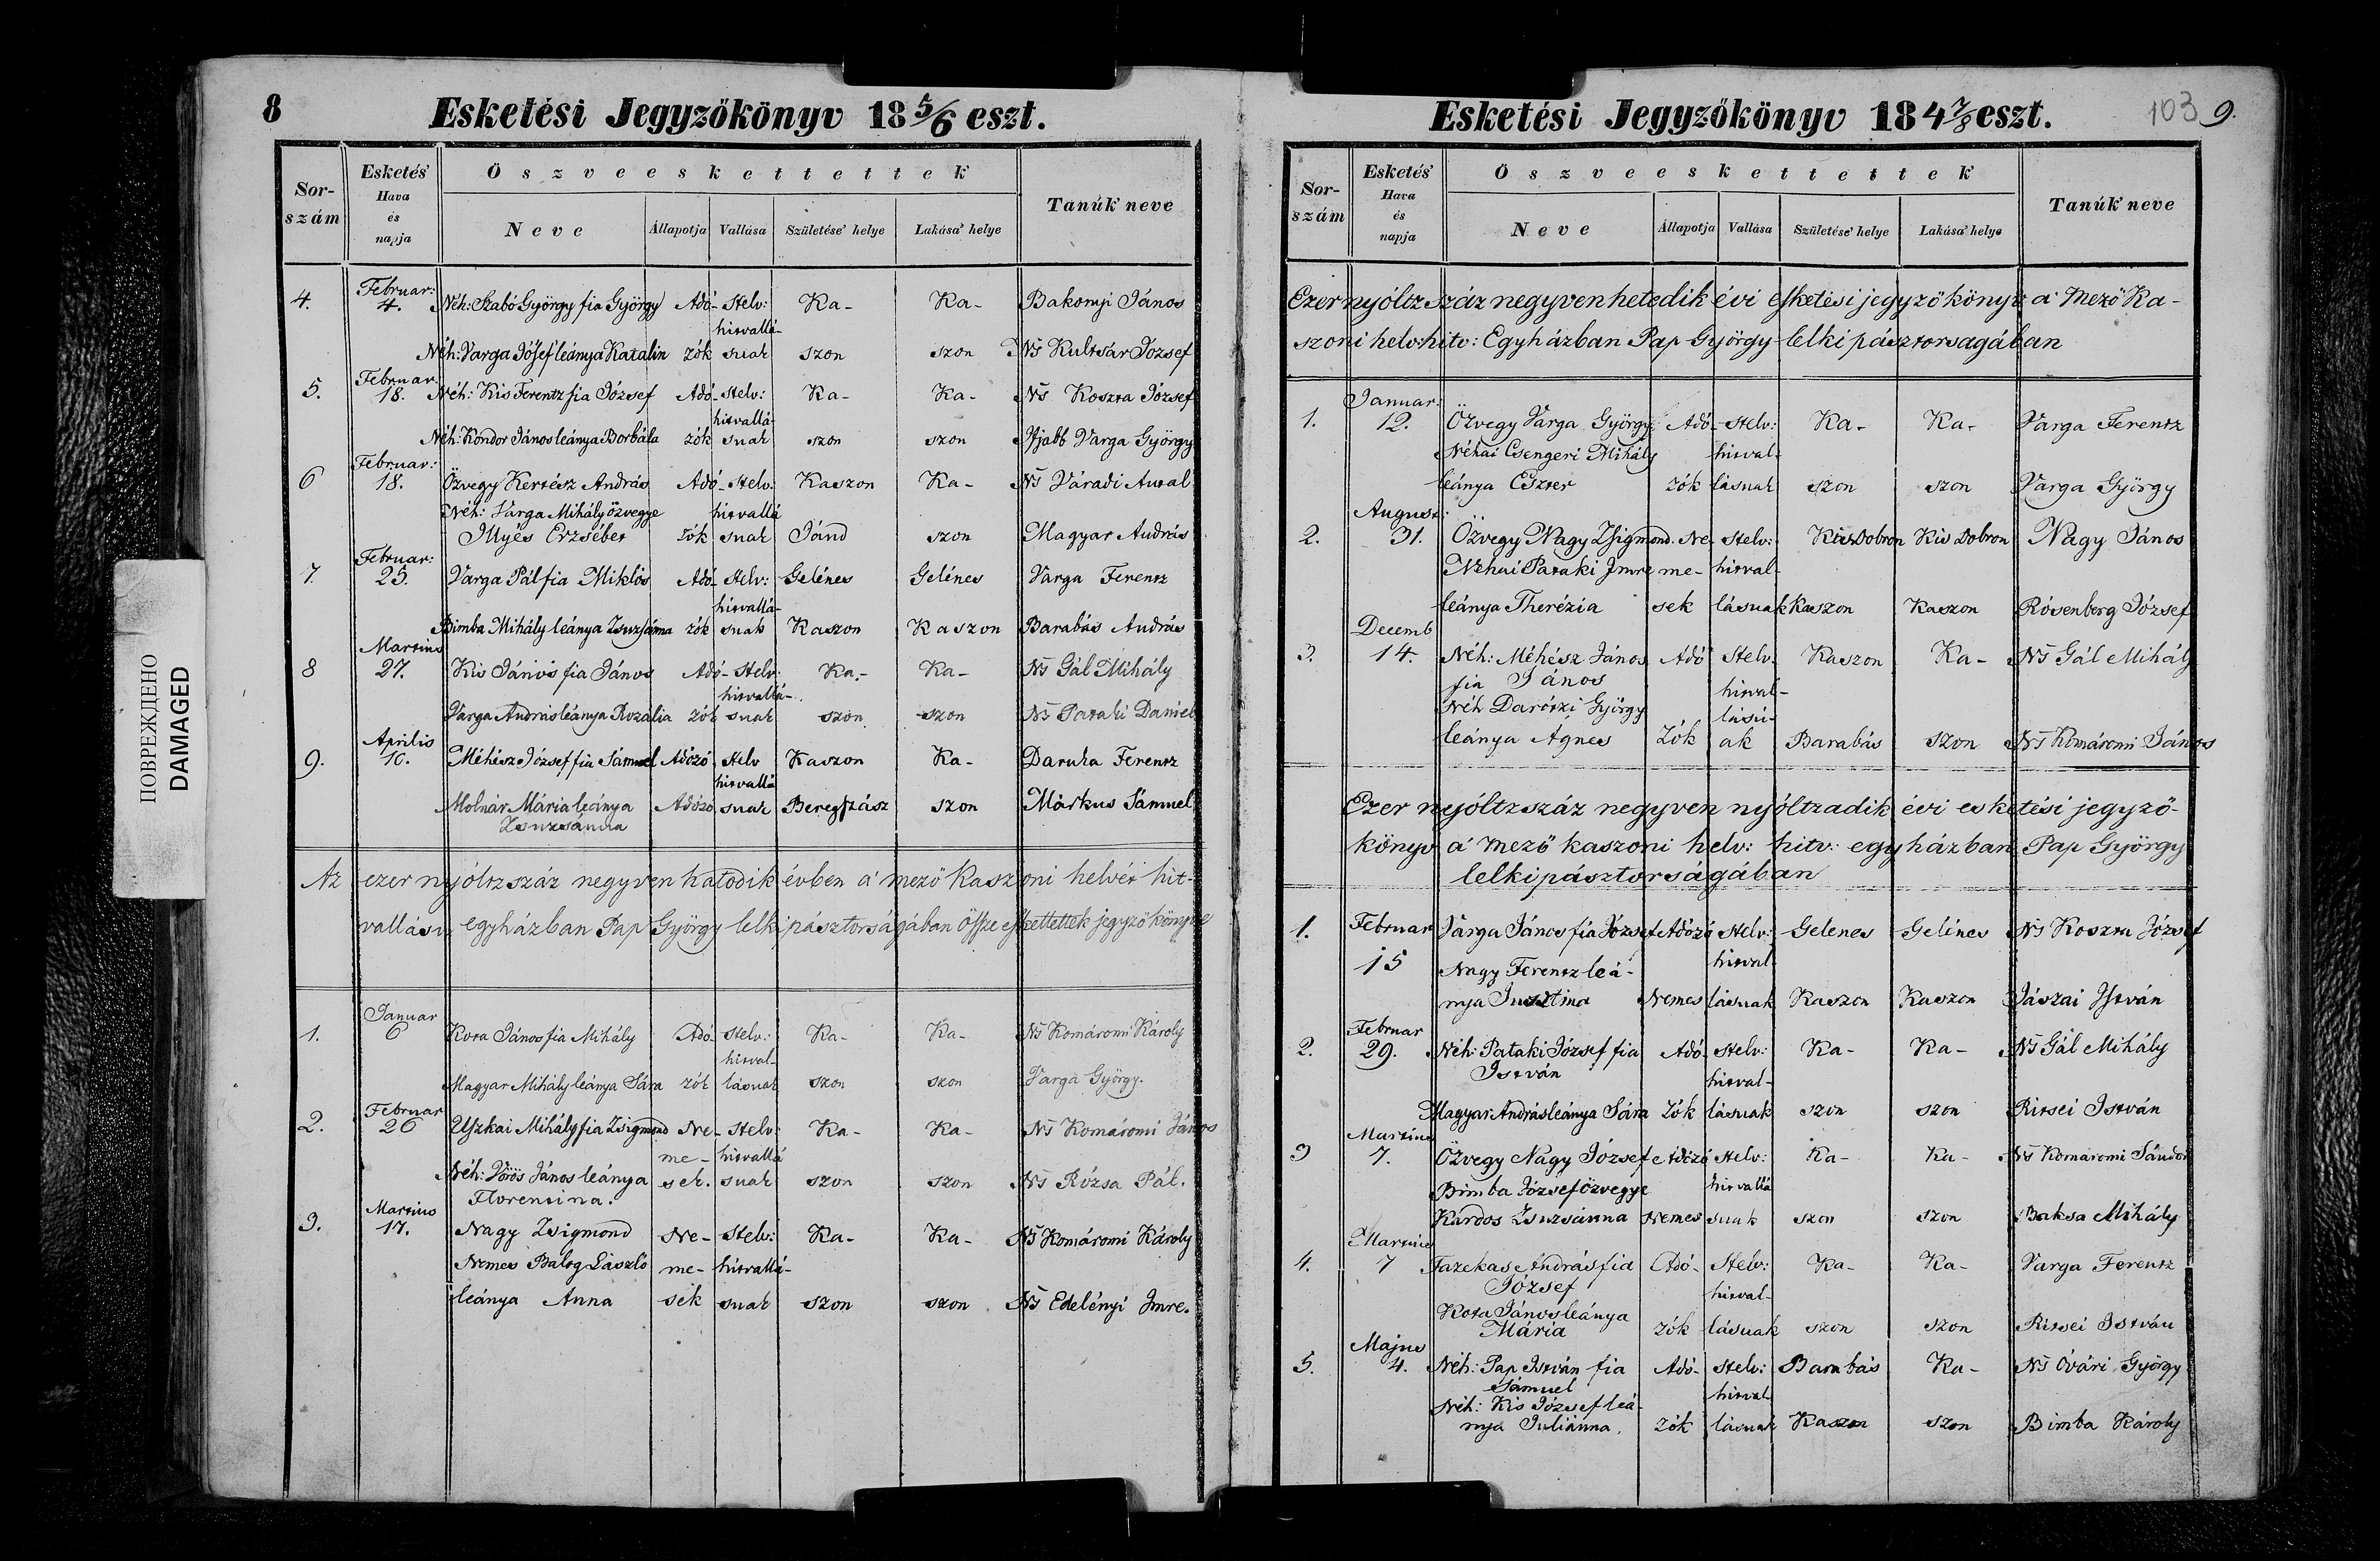 8
Esketési Jegyzőkönyv 18 5/6 eszt.
Sor-szám
Esketés' Hava és napja
Öszveeskettettek
Neve
Állapotja
Vallása
Születése' helye
Lakása' helye
Tanúk' neve
Februar:
4. 4. Néh: Szabó György fia György Adó- Helv: Ka- Ka- Bakonyi János
hitvallá-
Néh: Varga Jósef leánya Katalin zók suak szon szon Ns Kultsár József
Februar:
5. 18. Néh: Kis Ferentz fia József Adó- Helv: Ka- Ka- Ns Koszta József
hitvallá-
Néh: Kondor János leánya Borbála zók suak szon szon Ifjabb Varga György
Februar:
6 18. Özvegy Kertész András Adó- Helv: Kaszon Ka- Ns Váradi Antal
Néh: Varga Mihály özvegye hitvallá
Illyés Erzsébet zók suak Jánd szon Magyar András
Februar:
7. 25. Varga Pál fia Miklós Adó- Helv: Gelénes Gelénes Varga Ferentz
hitvallá-
Bimba Mihály leánya Zsuzsánna zók suak Kaszon Kaszon Barabás András
Martius
8 27. Kis János fia János Adó- Helv: Ka- Ka- Ns Gál Mihály
hitvallá-
Varga András leánya Rozália zók suak szon szon Ns Pataki Daniel
Aprilis
9. 10. Méhész József fia Sámuel Adózó Helv Kaszon Ka- Ferentz
hitvallá
Molnár Mária leánya Adózó suak Beregszász szon Márkus Sámuel
Zsuzsánna
Az ezer nyóltzszáz negyven hatodik évben a' mező Kaszoni helvét hit-
vallásu egyházban Pap György lelki pásztorságában össze eskettettek jegyző könyve
Januar
1. 6 Kota János fia Mihály Adó- Helv: Ka- Ka- Ns Komáromi Károly
hitval-
Magyar Mihály leánya Sára zók lásuak szon szon Varga György.
Februar
2. 26 Uszkai Mihály fia Zsigmond Ne- Helv: Ka- Ka- Ns Komáromi János
me- hitvallá
Néh: Vörös János leánya sek. suak szon szon Ns Rózsa Pál.
Florentina.
Martius
3. 17. Nagy Zsigmond Ne- Helv: Ka- Ka- Ns Komáromi Károly
Nemes Balog László me- hitvallá-
leánya Anna sek suak szon szon Ns Edelényi Imre.
Esketési Jegyzőkönyv 184 7/8 eszt.
103 9.
Sor-szám
Esketés' Hava és napja
Öszveeskettettek
Neve
Állapotja
Vallása
Születése' helye
Lakása' helye
Tanúk' neve
Ezer nyóltz száz negyvenhetedik évi esketési jegyző könyv a' Mező Ka-
szoni helv: hitv: Egyházban Pap György lelki pásztorsagában
Januar:
1. 12. Özvegy Varga György Adó- Helv: Ka- Ka- Varga Ferentz
Néhai Csengeri Mihály hitval-
leánya Eszter zók lásuak szon szon Varga György
August:
2. 31. Özvegy Nagy Zsigmond. Ne- Helv: Kis Dobron Kis Dobron Nagy János
Néhai Pataki Imre me- hitval-
leánya Therézia sek lásuak Kaszon Kaszon Rósenberg József
Decemb
3. 14. Néh: Méhész János Adó Helv. Kaszon Ka- Ns Gál Mihály
fia János hitval-
Néh Darótzi György lásu-
leánya Ágnes zók ak Barabás szon Ns Komáromi János
Ezer nyóltzszáz negyven nyóltzadik évi esketési jegyző-
könyv a' mező kaszoni helv: hitv: egyházban Pap György
lelkipásztorságában
1. Februar Varga János fia József Adózó Helv: Gelenes Gelénes Ns Koszta József
15 Nagy Ferentz leá- hitval
nya Jusztina Nemes lásuak Kaszon Kaszon Jászai István
Februar
2. 29. Néh: Pataki József fia Adó- Helv: Ka- Ka- Ns Gál Mihály
István hitval-
Magyar András leánya Sára zók lásuak szon szon Ritsei István
Martius
3 7. Özvegy Nagy József Adózó Helv: Ka- Ka- Ns Komáromi Sándor
Bimba József özvegye hitvallá
Kardos Zsuzsánna Nemes suak szon szon Baksa Mihály
Martius
4. 7 Fazekas András fia Adó- Helv: Ka- Ka- Varga Ferentz
József hitval-
Kota János leánya
Mária zók lásuak szon szon Ritsei István
Majus
5. 4. Néh: Pap István fia Adó- Helv: Barabás Ka- Ns Óvári György
Sámuel hitval-
Néh: Kis József leá-
nya Juliánna. zók lásuak Kaszon szon Bimba Károly
ПОВРЕЖДЕНО
DAMAGED